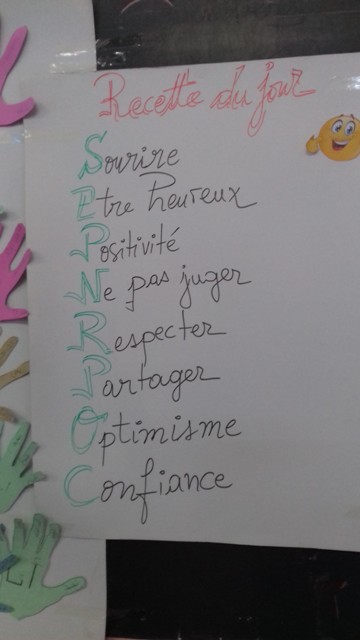 Recette du jour
Sourire
Etre heureux
Positivité
Ne pas juger
Respecter
Partager
Optimisme
Confiance